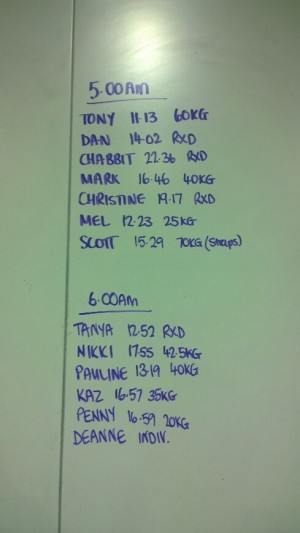 5.00AM
TONY 11.13 60KG
DAN 14.02 RXD
CHABBIT 22.36 RXD
MARK 16.46 40KG
CHRISTINE 19.17 RXD
MEL 12.23 25KG
SCOTT 15.29 70KG (Snaps)
6.00AM
TANYA 12.52 RXD
NIKKI 17.55 42.5KG
PAULINE 13.19 40KG
KAZ 16.57 35KG
PENNY 16.59 20KG
DEANNE INDIV.